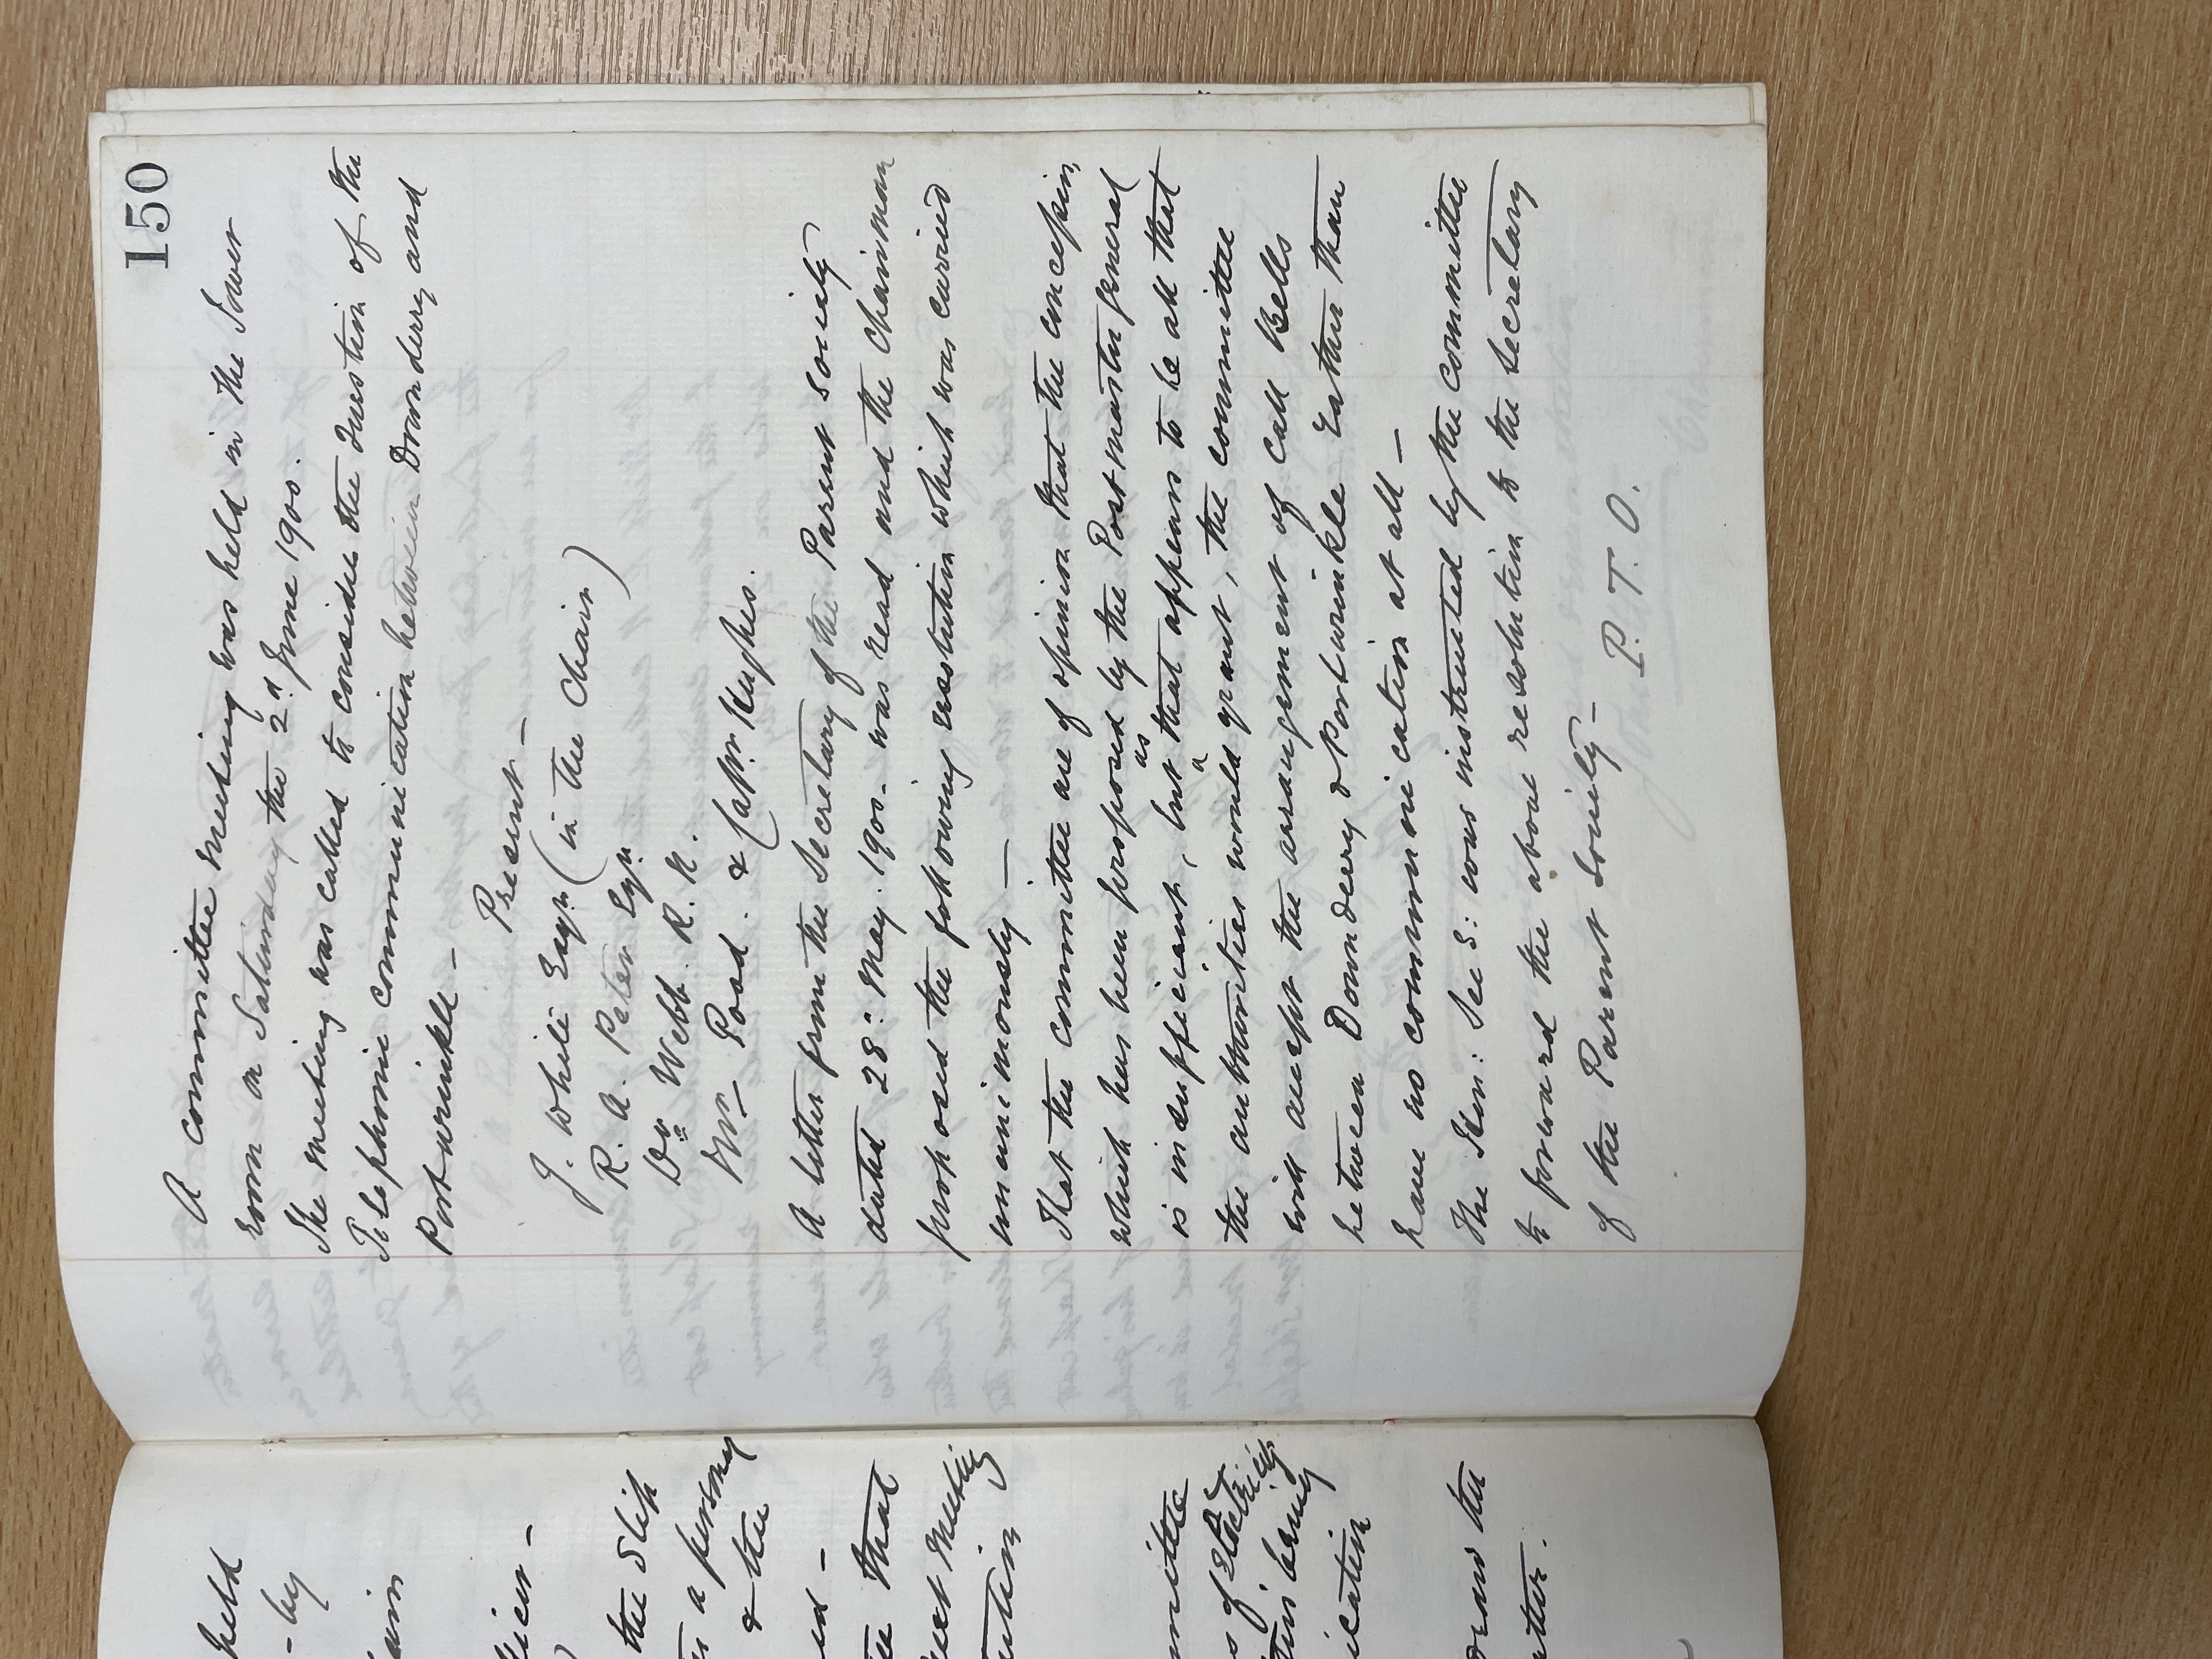 150
A committee meeting was held in the Tower
room on Saturday the 2d June 1900.
The meeting was called to consider the Question of the
Telephonic communication between Downderry and
Portwrinkle -
Present -
J. White Esqr. (in the Chair)
R. A. Peter Esqr.
Dr Webb. R. N.
Mr Poad. & Captn. Hughes.
A letter from the Secretary of the Parent Society
dated 28: May. 1900. was read and the Chairman
proposed the following resolution which was carried
unanimously —
That the committee are of opinion that the concession
which has been proposed by the Postmaster general
is insufficient, but as that appears to be all that
the authorities would grant, the committee
will accept the arrangement of Call Bells
between Downderry & Portwrinkle Rather than
have no communication at all -
The Hon: Sec S: was instructed by the committee
to forward the above resolution to the Secretary
of the Parent Society -
P. T. O.
held
- by
the Slip
a penny
& the
that
next meeting
of Electricity